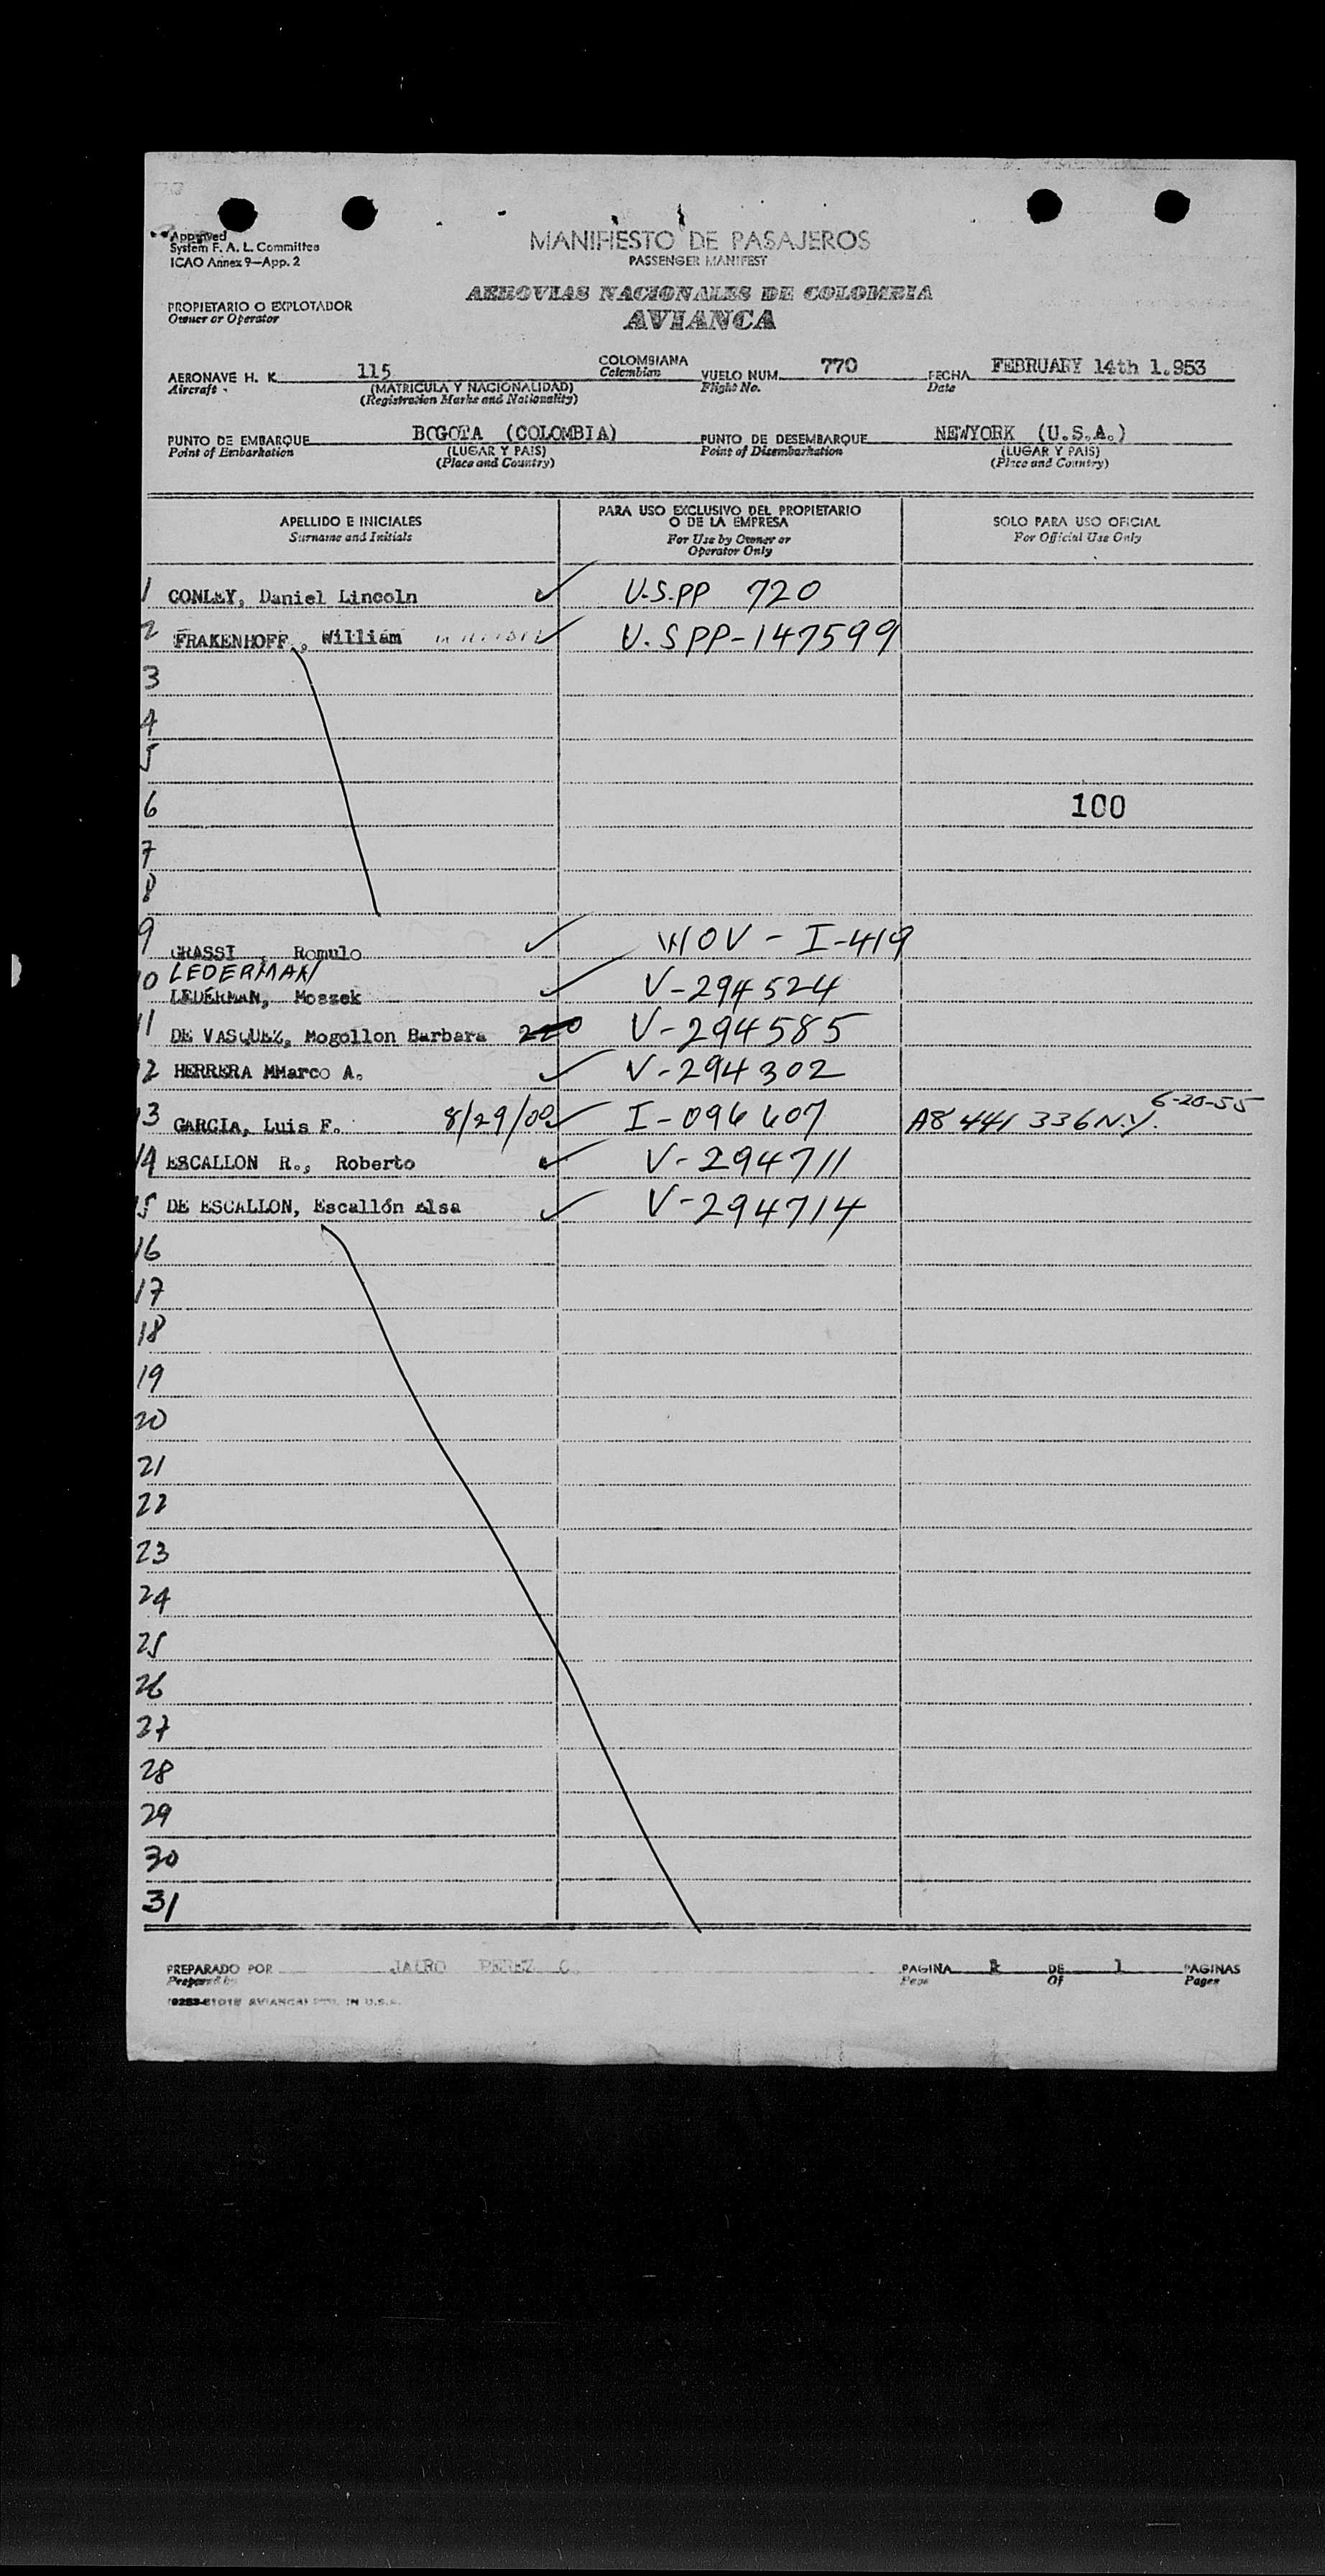 Approved
System F. A. L. Committee
ICAO Annex 9—App. 2
MANIFIESTO DE PASAJEROS
PASSENGER MANIFEST
PROPIETARIO O EXPLOTADOR
Owner or Operator
AEROVIAS NACIONALES DE COLOMBIA
AVIANCA
AERONAVE H. K. 115 COLOMBIANA VUELO NUM. 770 FECHA FEBRUARY 14th 1.953
Aircraft (MATRICULA Y NACIONALIDAD) Colombian Flight No. Date
(Registration Marks and Nationality)
PUNTO DE EMBARQUE BOGOTA (COLOMBIA) PUNTO DE DESEMBARQUE NEWYORK (U.S.A.)
Point of Embarkation (LUGAR Y PAIS) Point of Disembarkation (LUGAR Y PAIS)
(Place and Country) (Place and Country)
APELLIDO E INICIALES PARA USO EXCLUSIVO DEL PROPIETARIO SOLO PARA USO OFICIAL
O DE LA EMPRESA
Surname and Initials For Use by Owner or For Official Use Only
Operator Only
1 CONLEY, Daniel Lincoln ✓ U.S.PP 720
2 FRAKENHOFF, William ✓ U.S PP-147599
3
4
5
6 100
7
8
9 GRASSI, Romulo ✓ WOV - I-419
10 LEDERMAN
LEDERMAN, Moszek ✓ V-294524
11 DE VASQUEZ, Mogollon Barbara V-294585
12 HERRERA MMarco A. ✓ V-294302
13 GARCIA, Luis F. 8/29/00 ✓ I-096607 A8 441 336 N.Y. 6-20-55
14 ESCALLON R., Roberto ✓ V-294711
15 DE ESCALLON, Escallón Elsa ✓ V-294714
16
17
18
19
20
21
22
23
24
25
26
27
28
29
30
31
PREPARADO POR JAIRO PEREZ C. PAGINA DE 1 PAGINAS
Prepared by Page Of Pages
AVIANCA IN U.S.A.